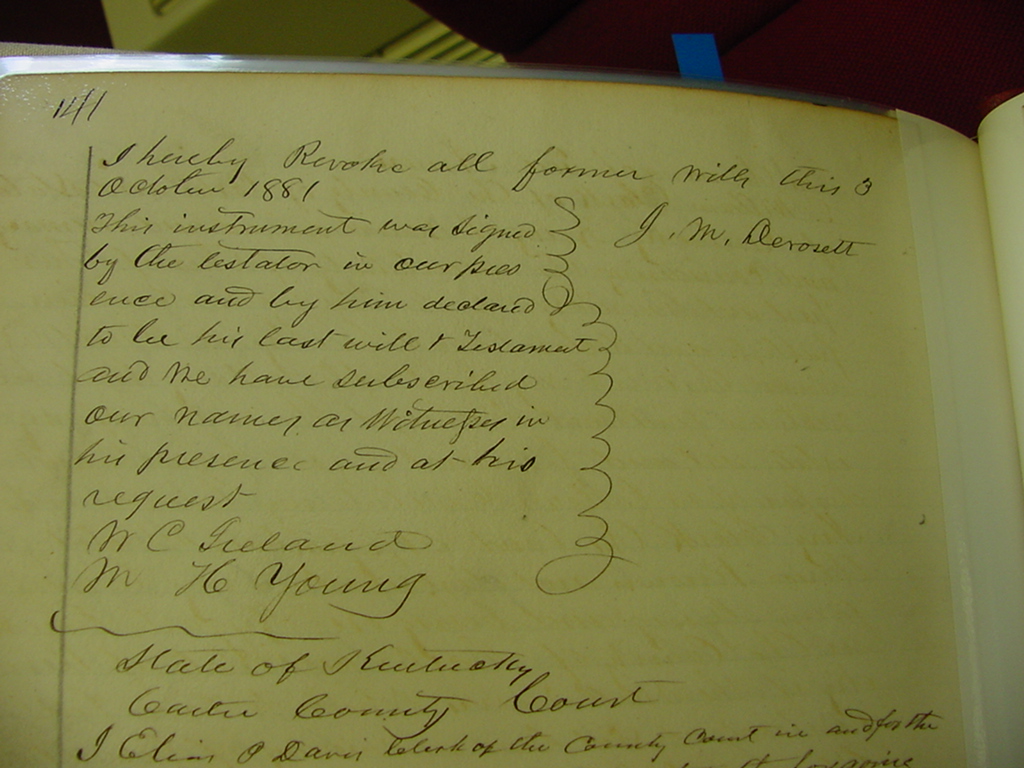 141
I hereby Revoke all former wills this 3
October 1881
This instrument was signed
J. M. Derosett
by the testator in our pres
ence and by him declared
to be his last will & Testament
and we have subscribed
our names as Witnesses in
his presence and at his
request
W C Ireland
M H Young
State of Kentucky
Carter County Court
I Elias P Davis Clerk of the County Court in and for the